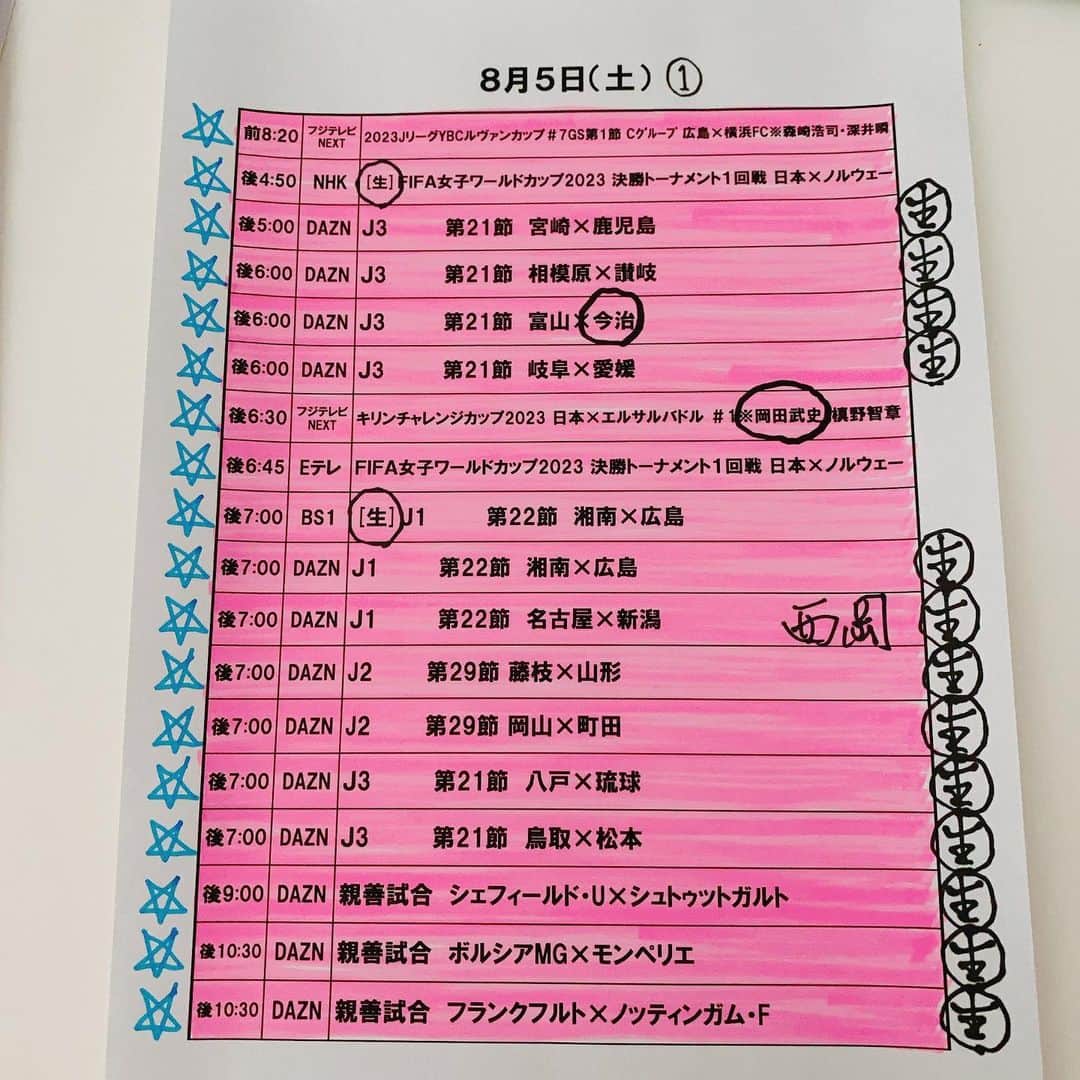 8月5日(土) ①
前8:20 フジテレビNEXT 2023JリーグYBCルヴァンカップ#7GS第1節 Cグループ 広島×横浜FC※森崎浩司・深井瞬
後4:50 NHK [生]FIFA女子ワールドカップ2023 決勝トーナメント1回戦 日本×ノルウェー
後5:00 DAZN J3 第21節 宮崎×鹿児島 生
後6:00 DAZN J3 第21節 相模原×讃岐 生
後6:00 DAZN J3 第21節 富山×今治 生
後6:00 DAZN J3 第21節 岐阜×愛媛 生
後6:30 フジテレビNEXT キリンチャレンジカップ2023 日本×エルサルバドル #1※岡田武史・槙野智章
後6:45 Eテレ FIFA女子ワールドカップ2023 決勝トーナメント1回戦 日本×ノルウェー
後7:00 BS1 [生]J1 第22節 湘南×広島
後7:00 DAZN J1 第22節 湘南×広島 生
後7:00 DAZN J1 第22節 名古屋×新潟 西岡 生
後7:00 DAZN J2 第29節 藤枝×山形 生
後7:00 DAZN J2 第29節 岡山×町田 生
後7:00 DAZN J3 第21節 八戸×琉球 生
後7:00 DAZN J3 第21節 鳥取×松本 生
後9:00 DAZN 親善試合 シェフィールド・U×シュトゥットガルト 生
後10:30 DAZN 親善試合 ボルシアMG×モンペリエ 生
後10:30 DAZN 親善試合 フランクフルト×ノッティンガム・F 生